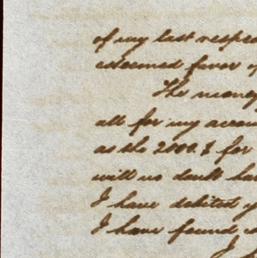 of my last respec
esteemed favor of
The money
all for my accou
as the 2000 $ for
will no doubt hav
I have debited y
I have found
I